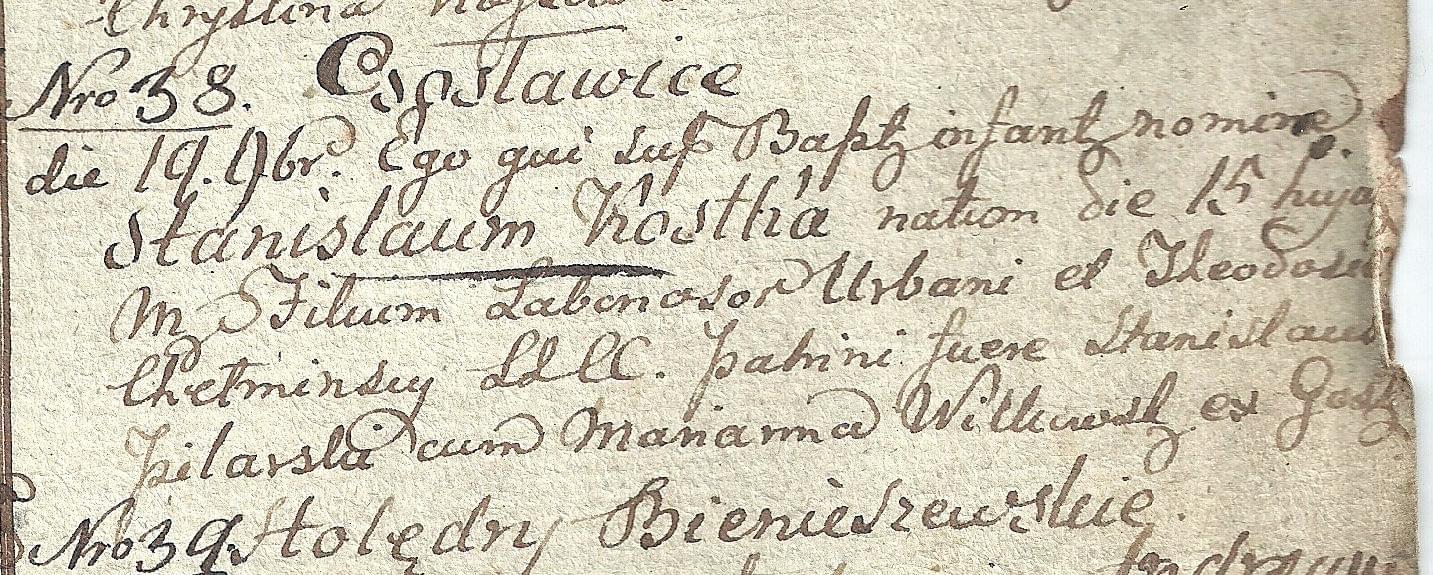 Chrystina
Nro 38. Częstawice
die 19. 9br. Ego qui sup Bapt infant nomine
Stanislaum Kostka nation die 15 huja
m Filium Laboriosor Urbani et Theodosie
Chełminscy LLCC. patrini fuere Stanislaus
Pilarski cum Marianna Witkowsk ex Gost
Nro 39. Holędry Bienieszewskie.
Andream